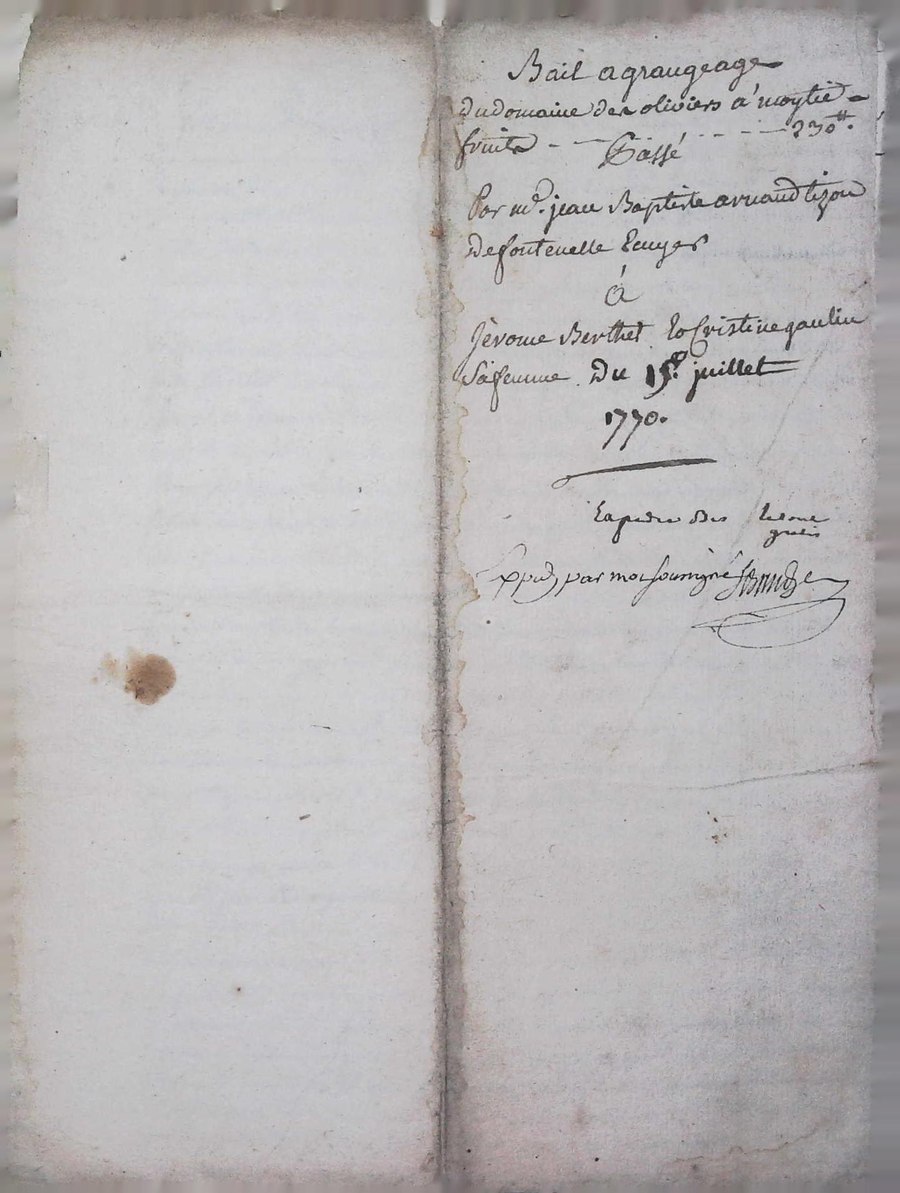 Bail a grangeage
du domaine des oliviers a moytie
fruits - - - - - 230#.
Passé
Par mr. jean Baptiste arnaud tizon
De fontenelle Ecuyer
à
Jèrome Berthet Et Cristine gaulin
Sa femme Du 15e. juillet
1770.
par moi soussigné